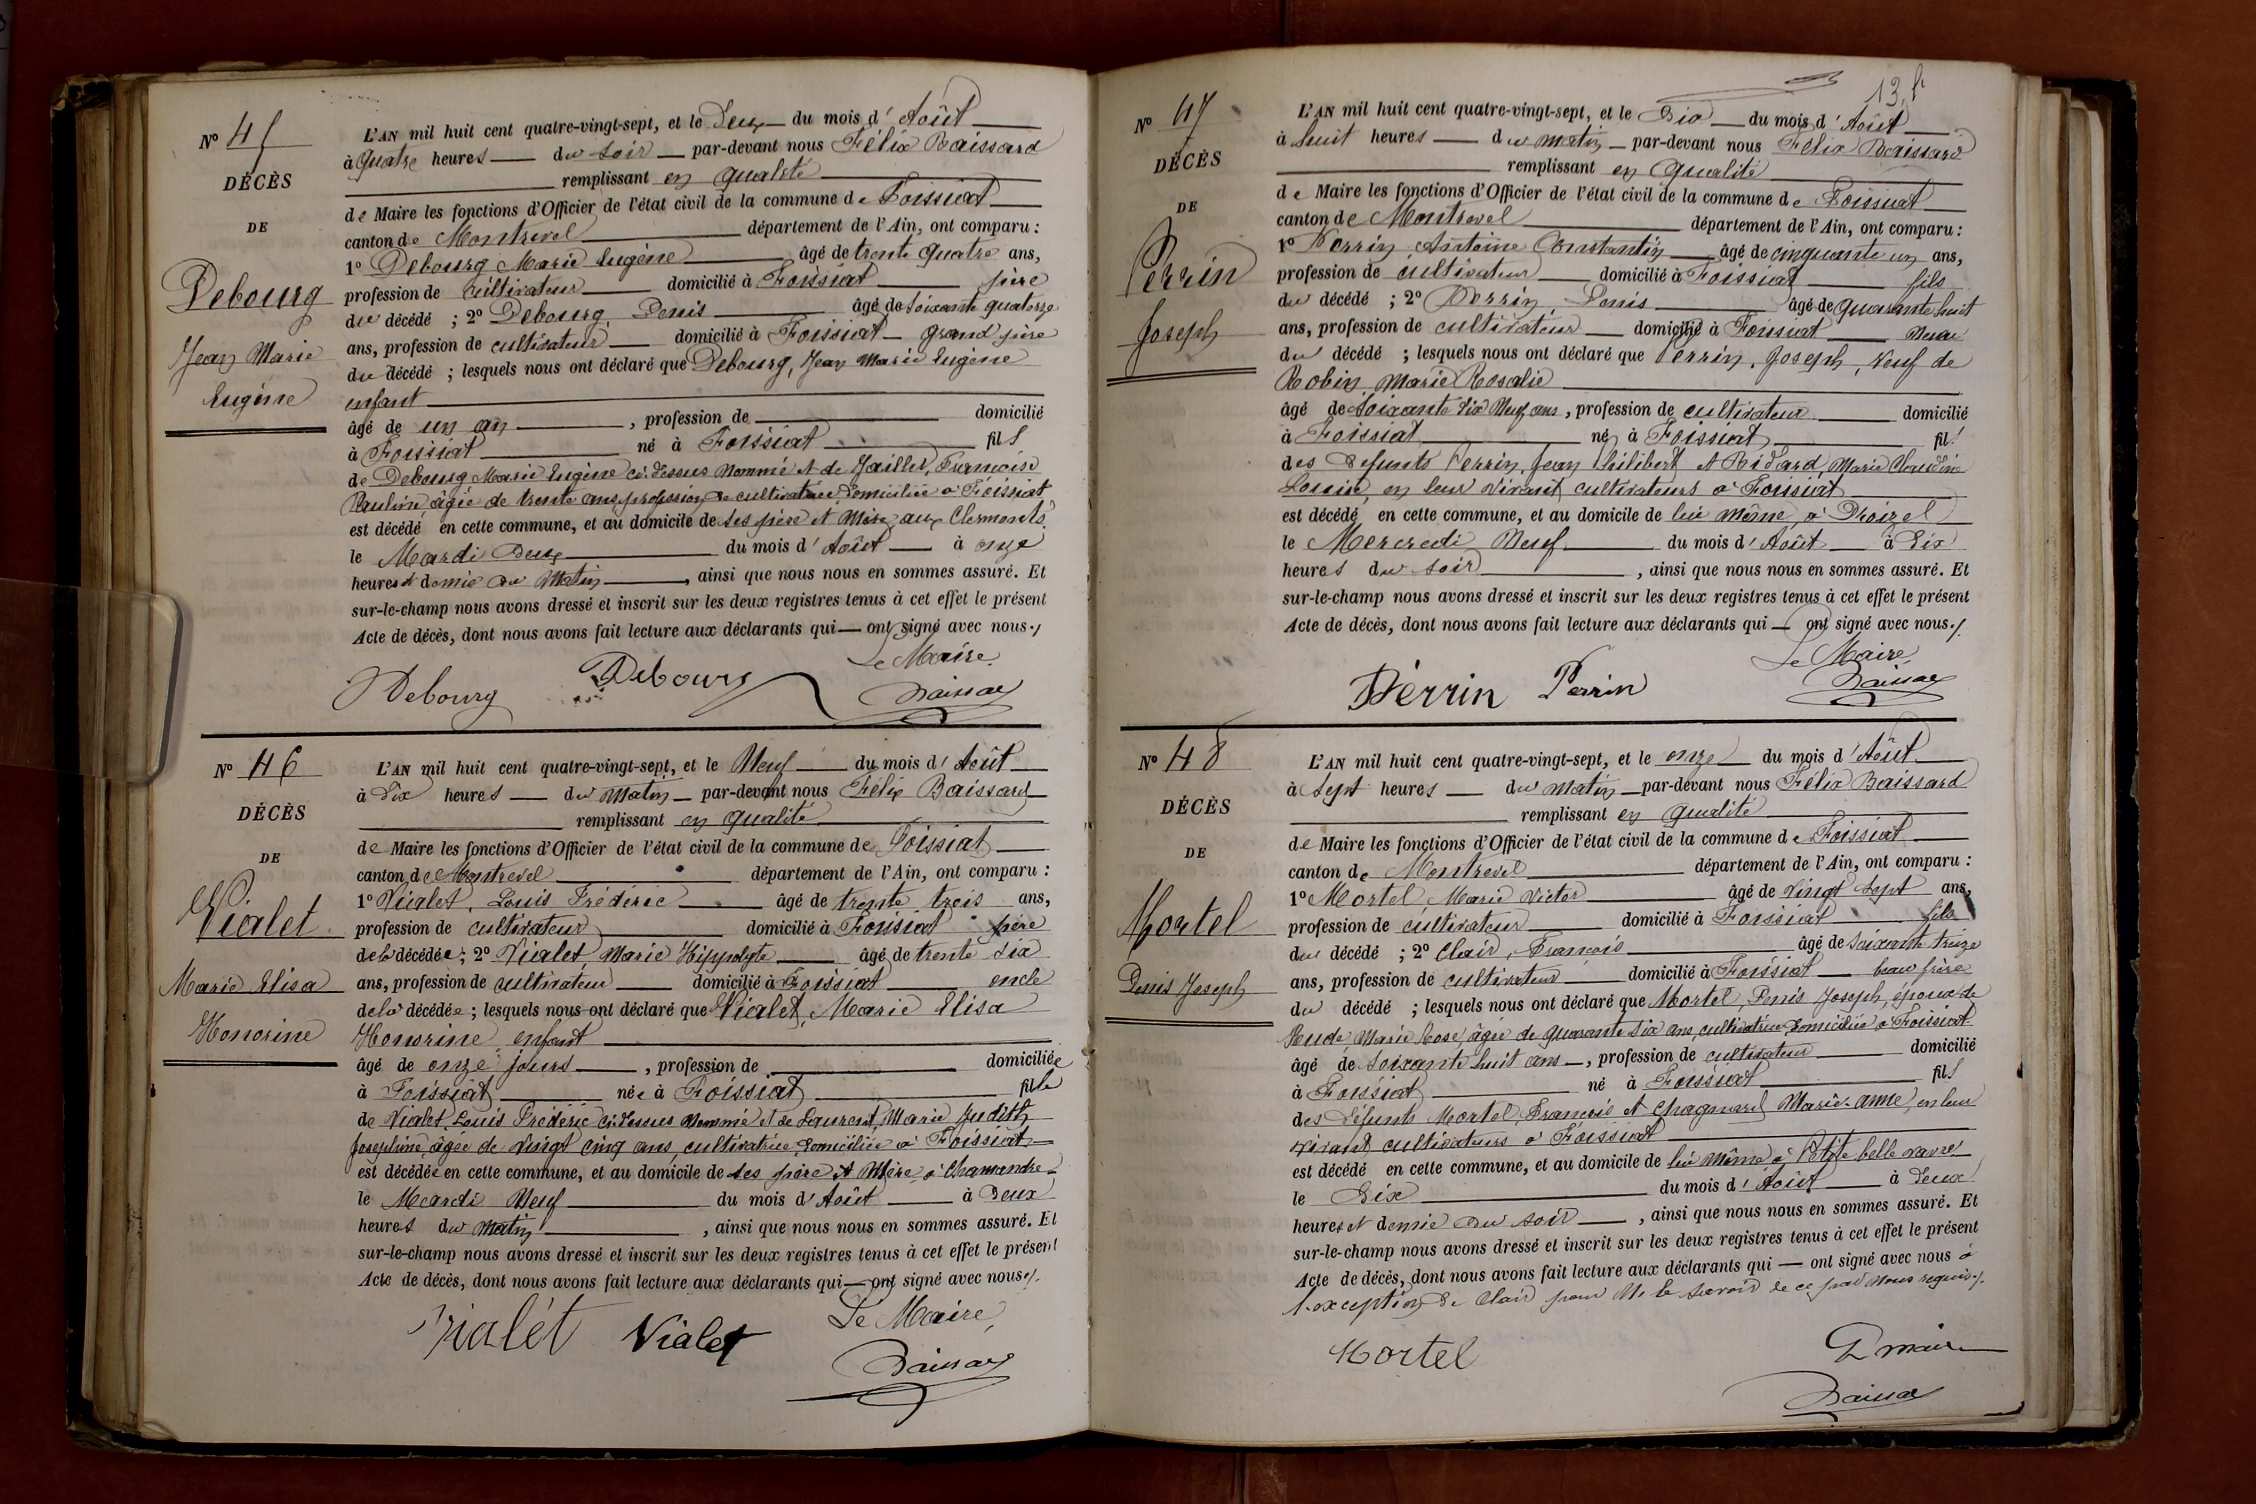 No 45
DÉCÈS
DE
Debourg
Jean Marie
Eugène
L'AN mil huit cent quatre-vingt-sept, et le Deux du mois d'Août
à quatre heures du soir par-devant nous Félix Baissard
remplissant en qualité
de Maire les fonctions d'Officier de l'état civil de la commune de Foissiat
canton de Montrevel département de l'Ain, ont comparu :
1º Debourg Marie Eugène âgé de trente quatre ans,
profession de cultivateur domicilié à Foissiat père
du décédé ; 2º Debourg Denis âgé de soixante quatorze
ans, profession de cultivateur domicilié à Foissiat grand père
du décédé ; lesquels nous ont déclaré que Debourg, Jean Marie Eugène
enfant
âgé de un an, profession de domicilié
à Foissiat né à Foissiat fils
de Debourg Marie Eugène ci-dessus nommé et de Jaillet, Françoise
Pauline, âgée de trente ans, profession de cultivatrice domiciliée à Foissiat
est décédé en cette commune, et au domicile de ses père et Mère, aux Clermonts
le Mardi Deux du mois d'Août à onze
heures et demie du Matin, ainsi que nous nous en sommes assuré. Et
sur-le-champ nous avons dressé et inscrit sur les deux registres tenus à cet effet le présent
Acte de décès, dont nous avons fait lecture aux déclarants qui ont signé avec nous./.
Le Maire
Debourg Debourg Baissard
No 46
DÉCÈS
DE
Vialet
Marie Elisa
Honorine
L'AN mil huit cent quatre-vingt-sept, et le Neuf du mois d'Août
à Dix heures du Matin par-devant nous Félix Baissard
remplissant en qualité
de Maire les fonctions d'Officier de l'état civil de la commune de Foissiat
canton de Montrevel département de l'Ain, ont comparu :
1º Vialet, Louis Frédéric âgé de trente trois ans,
profession de cultivateur domicilié à Foissiat père
de la décédée ; 2º Vialet Marie Hippolyte âgé de trente six
ans, profession de cultivateur domicilié à Foissiat oncle
de la décédée ; lesquels nous ont déclaré que Vialet, Marie Elisa
Honorine, enfant
âgé de onze jours, profession de domiciliée
à Foissiat née à Foissiat fille
de Vialet, Louis Frédéric ci-dessus nommé et de Laurent, Marie Judith
Joséphine, âgée de Vingt cinq ans, cultivatrice, domiciliée à Foissiat
est décédée en cette commune, et au domicile de ses père et Mère, à Chamandre
le Mardi Neuf du mois d'Août à Deux
heures du Matin, ainsi que nous nous en sommes assuré. Et
sur-le-champ nous avons dressé et inscrit sur les deux registres tenus à cet effet le présent
Acte de décès, dont nous avons fait lecture aux déclarants qui ont signé avec nous./.
Le Maire,
Vialet Vialet Baissard
13
No 47
DÉCÈS
DE
Perrin
Joseph
L'AN mil huit cent quatre-vingt-sept, et le Dix du mois d'Août
à huit heures du matin par-devant nous Félix Baissard
remplissant en qualité
de Maire les fonctions d'Officier de l'état civil de la commune de Foissiat
canton de Montrevel département de l'Ain, ont comparu :
1º Perrin Antoine Constantin âgé de cinquante un ans,
profession de cultivateur domicilié à Foissiat fils
du décédé ; 2º Perrin, Denis âgé de quarante huit
ans, profession de cultivateur domicilié à Foissiat neveu
du décédé ; lesquels nous ont déclaré que Perrin, Joseph, veuf de
Robin Marie Rosalie
âgé de soixante dix Neuf ans, profession de cultivateur domicilié
à Foissiat né à Foissiat fils
des défunts Perrin, Jean Philibert et Bidard Marie Claudine
Louise, en leur vivant cultivateurs à Foissiat
est décédé en cette commune, et au domicile de lui même, à Proizel
le Mercredi Neuf du mois d'Août à Dix
heures du soir, ainsi que nous nous en sommes assuré. Et
sur-le-champ nous avons dressé et inscrit sur les deux registres tenus à cet effet le présent
Acte de décès, dont nous avons fait lecture aux déclarants qui ont signé avec nous./.
Le Maire,
Perrin Perrin Baissard
No 48
DÉCÈS
DE
Mortel
Denis Joseph
L'AN mil huit cent quatre-vingt-sept, et le onze du mois d'Août
à Sept heures du matin par-devant nous Félix Baissard
remplissant en qualité
de Maire les fonctions d'Officier de l'état civil de la commune de Foissiat
canton de Montrevel département de l'Ain, ont comparu :
1º Mortel Marie Victor âgé de Vingt Sept ans,
profession de cultivateur domicilié à Foissiat fils
du décédé ; 2º Clair, François âgé de soixante treize
ans, profession de cultivateur domicilié à Foissiat beau frère
du décédé ; lesquels nous ont déclaré que Mortel, Denis Joseph, époux de
Rude, Marie Rose, âgée de quarante six ans, cultivatrice domiciliée à Foissiat
âgé de soixante huit ans, profession de cultivateur domicilié
à Foissiat né à Foissiat fils
des défunts Mortel, François et Chagnard Marie-Anne, en leur
vivant cultivateurs à Foissiat
est décédé en cette commune, et au domicile de lui même à Petite belle vavre
le Dix du mois d'Août à Deux
heures et demie du soir, ainsi que nous nous en sommes assuré. Et
sur-le-champ nous avons dressé et inscrit sur les deux registres tenus à cet effet le présent
Acte de décès, dont nous avons fait lecture aux déclarants qui ont signé avec nous à
l'exception de Clair pour ne le savoir de ce par nous requis./.
Mortel
Le maire
Baissard